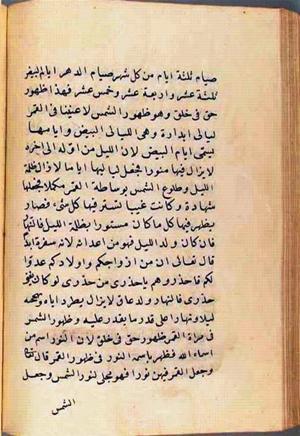 صيام ثلثة ايام من كل شهر صيام الدهر ايام البيض
ثلثة عشر واربعة عشر وخمس عشر فهذا ظهور
حق في خلق وهو ظهور الشمس لاعيننا في القمر
ليالي ابداره وهي الليالي البيض وايامها
ليسمى ايام البيض لان الليل من اوله الى اخره
لا يزال فيها منورا فجعل لياليها اياما لازالة ظلمة
الليل وطلوع الشمس بواسطة القمر مكملا فجعلها
شهادة وكانت غيبا تستر فيها كل شيء فصار
يظهر فيها كل ما كان مستورا بظلمة الليل فالنهار
فان كان ولد الليل فهو من اعدائه لانه سفرة ابدا
قال تعالى ان من ازواجكم واولادكم عدوا
لكم فاحذروهم يا حذري من حذري لو كان يغني
حذري فالنهار ولد عاق لا يزال يطرد اباه ويمحه
ليلا ونهارا على قدر ما يقدر عليه وظهور الشمس
في مرآة القمر ظهور حق في خلق لان النور اسم من
اسماء الله فظهر باسمه النور في ظهور القمر قال تعالى
وجعل القمر فيهن نورا فهو مجلى لنور الشمس وجعل
الشمس